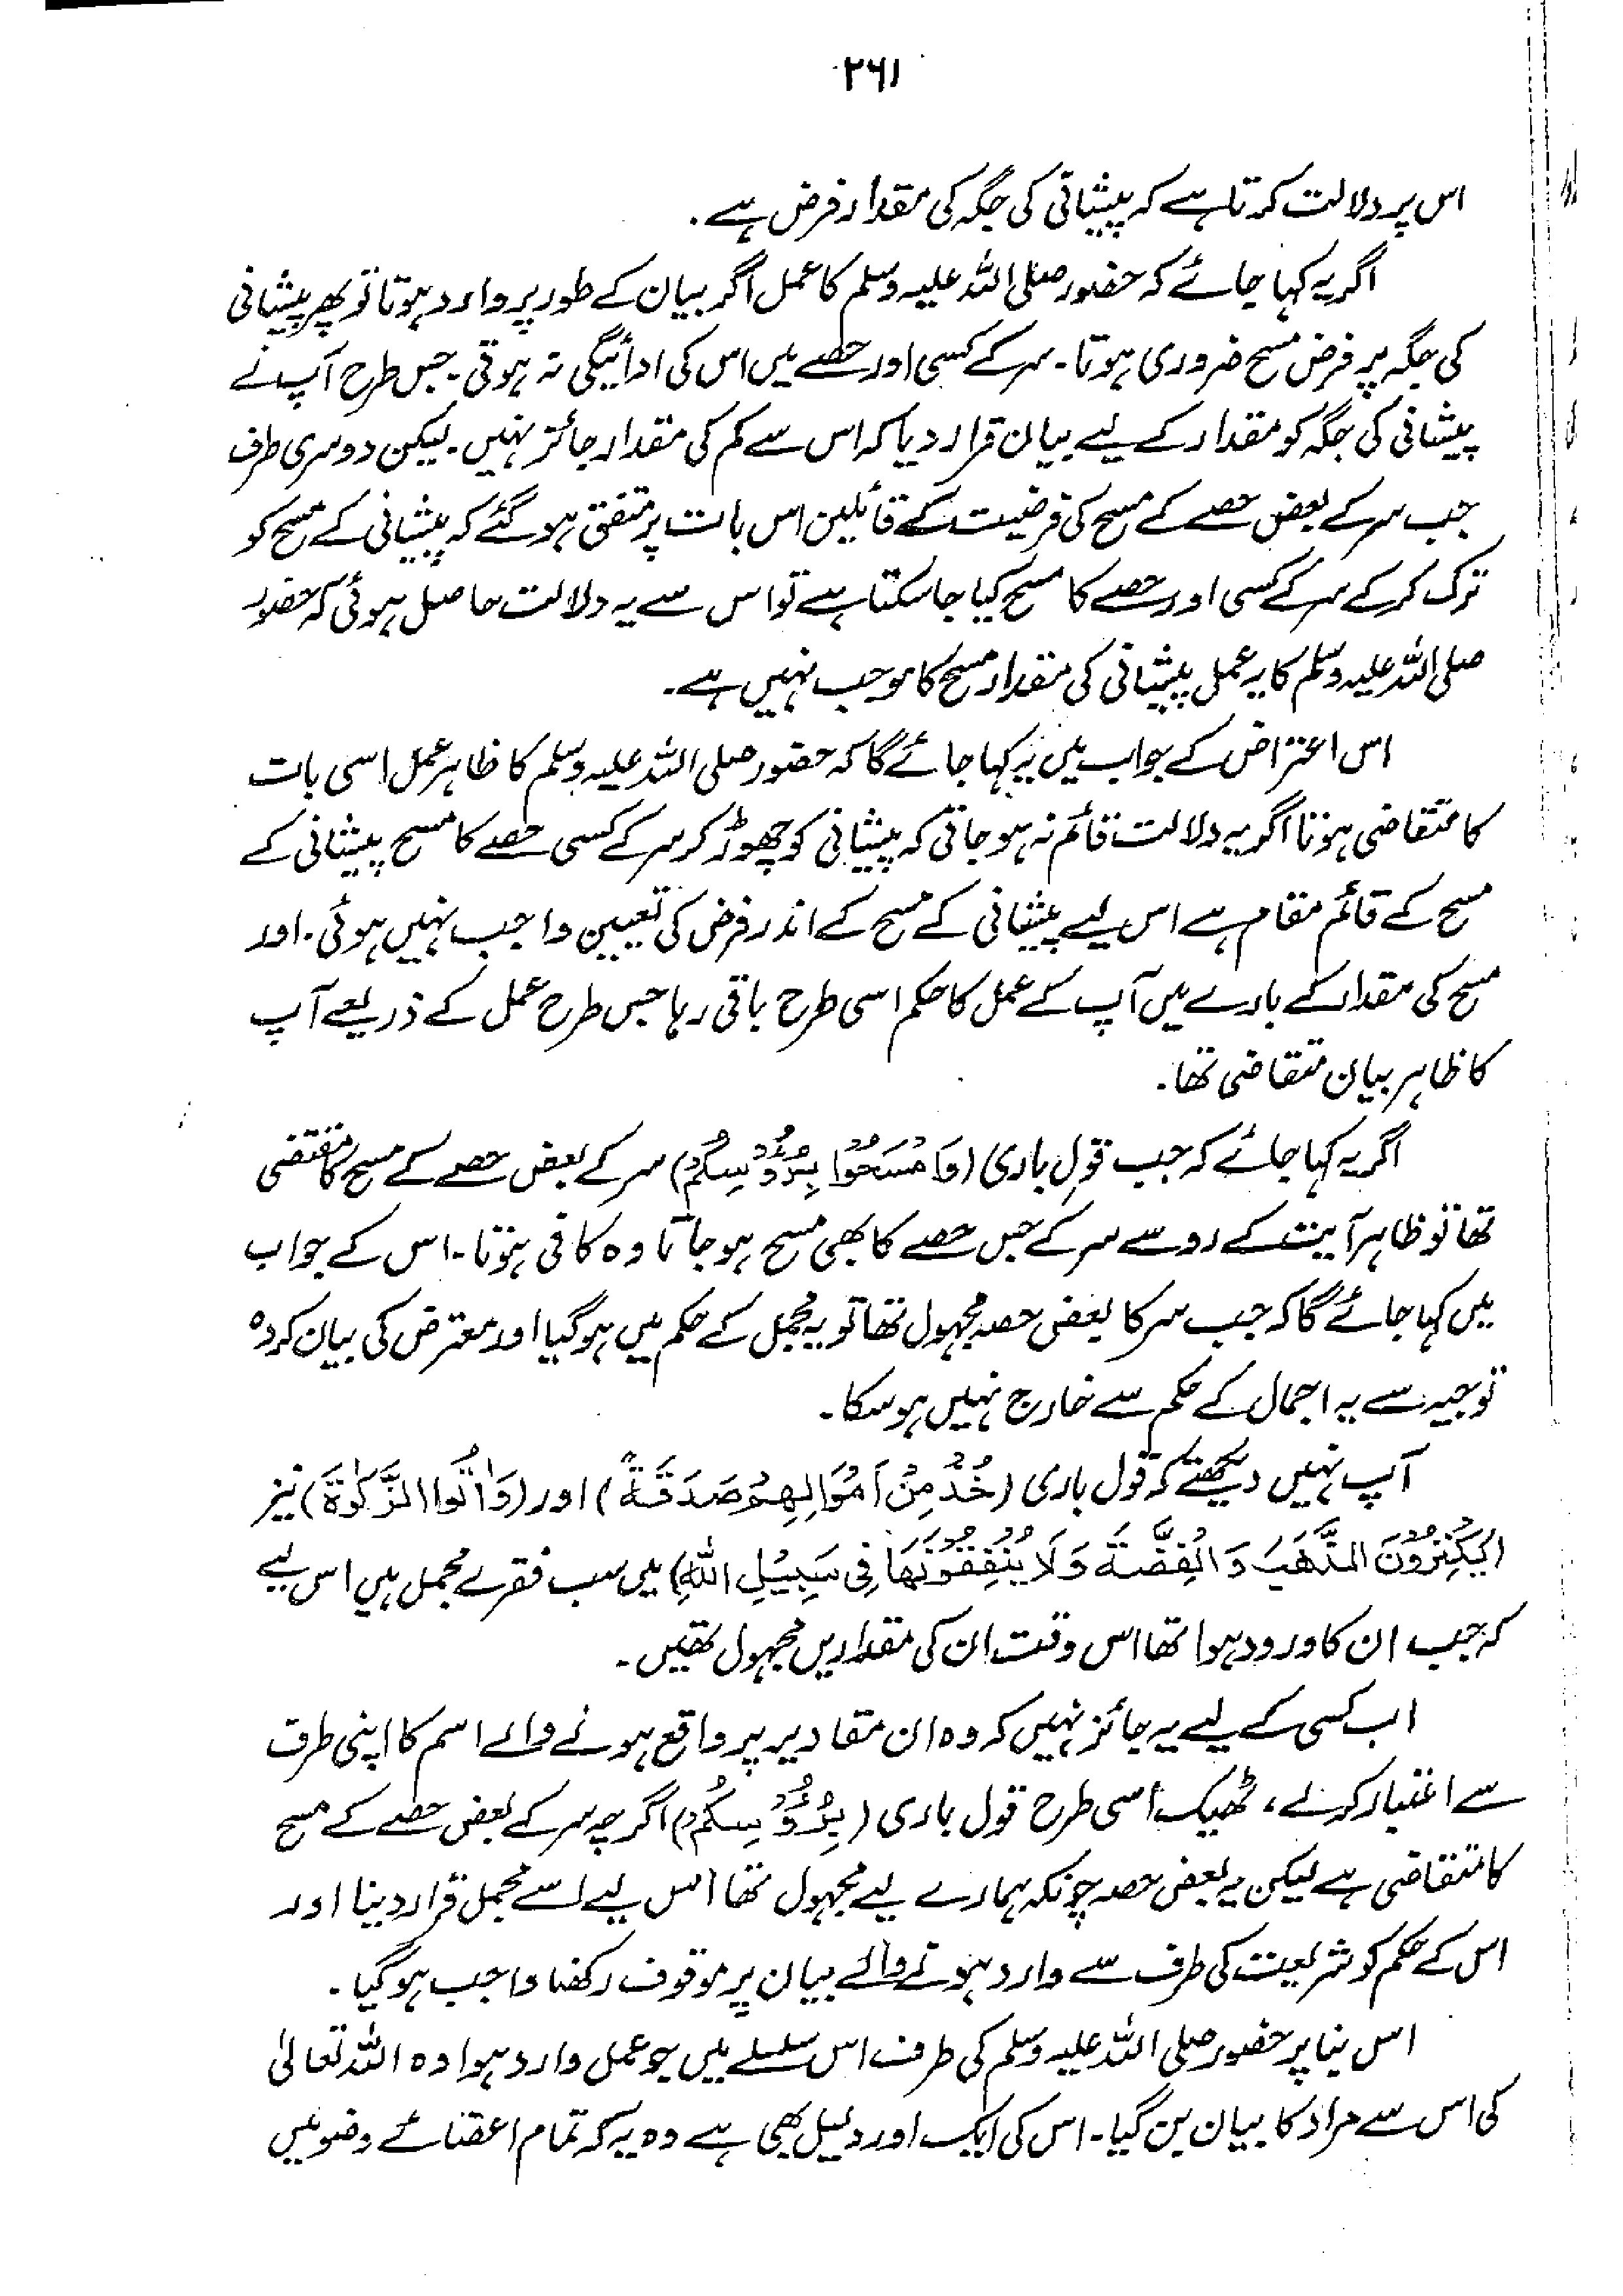 ۲۶۱
اس پر دلالت کرتا ہے کہ پیشانی کی جگہ کی مقدار فرض ہے۔
اگر یہ کہا جائے کہ حضور صلی اللہ علیہ وسلم کا عمل اگر بیان کے طور پر وارد ہوتا تو پھر پیشانی
کی جگہ پر فرض مسح ضروری ہوتا۔ سر کے کسی اور حصے میں اس کی ادائیگی نہ ہوتی۔ جس طرح آپ نے
پیشانی کی جگہ کو مقدار کے لیے بیان قرار دیا کہ اس سے کم کی مقدار جائز نہیں۔ لیکن دوسری طرف
جب سر کے بعض حصے کے مسح کی فرضیت کے قائلین اس بات پر متفق ہو گئے کہ پیشانی کے مسح کو
ترک کر کے سر کے کسی اور حصے کا مسح کیا جا سکتا ہے تو اس سے یہ دلالت حاصل ہوئی کہ حضور
صلی اللہ علیہ وسلم کا یہ عمل پیشانی کی مقدار مسح کا موجب نہیں ہے۔
اس اعتراض کے جواب میں یہ کہا جائے گا کہ حضور صلی اللہ علیہ وسلم کا ظاہر عمل اسی بات
کا متقاضی ہوتا اگر یہ دلالت قائم نہ ہو جاتی کہ پیشانی کو چھوڑ کر سر کے کسی حصے کا مسح پیشانی کے
مسح کے قائم مقام ہے اس لیے پیشانی کے مسح کے اندر فرض کی تعیین واجب نہیں ہوئی۔ اور
مسح کی مقدار کے بارے میں آپ کے عمل کا حکم اسی طرح باقی رہا جس طرح عمل کے ذریعے آپ
کا ظاہر بیان متقاضی تھا۔
اگر یہ کہا جائے کہ جب قولِ باری (وَامْسَحُوْا بِرُؤُوْسِكُمْ) سر کے بعض حصے کے مسح کا مقتضی
تھا تو ظاہر آیت کے رو سے سر کے جس حصے کا بھی مسح ہو جاتا وہ کافی ہوتا۔ اس کے جواب
میں کہا جائے گا کہ جب سر کا بعض حصہ مجہول تھا تو یہ مجمل کے حکم میں ہو گیا اور معترض کی بیان کردہ
توجیہ سے یہ اجمال کے حکم سے خارج نہیں ہو سکا۔
آپ نہیں دیکھتے کہ قول باری (خُذْ مِنْ اَمْوَالِهِمْ صَدَقَةً) اور (وَاٰتُوا الزَّكٰوةَ) نیز
(يَكْنِزُوْنَ الذَّهَبَ وَالْفِضَّةَ وَلَا يُنْفِقُوْنَهَا فِى سَبِيْلِ اللّٰهِ) میں سب فقرے مجمل ہیں اس لیے
کہ جب ان کا ورود ہوا تھا اس وقت ان کی مقداریں مجہول تھیں۔
اب کسی کے لیے یہ جائز نہیں کہ وہ ان مقادیر پر واقع ہونے والے اسم کا اپنی طرف
سے اعتبار کر لے، ٹھیک اُسی طرح قول باری (بِرُؤُوْسِكُمْ) اگرچہ سر کے بعض حصے کے مسح
کا متقاضی ہے لیکن یہ بعض حصہ چونکہ ہمارے لیے مجہول تھا اس لیے اسے مجمل قرار دینا اور
اس کے حکم کو شریعت کی طرف سے وارد ہونے والے بیان پر موقوف رکھنا واجب ہو گیا۔
اس بنا پر حضور صلی اللہ علیہ وسلم کی طرف اس سلسلے میں جو عمل وارد ہوا وہ اللہ تعالیٰ
کی اس سے مراد کا بیان بن گیا۔ اس کی ایک اور دلیل بھی ہے وہ یہ کہ تمام اعضائے وضو میں